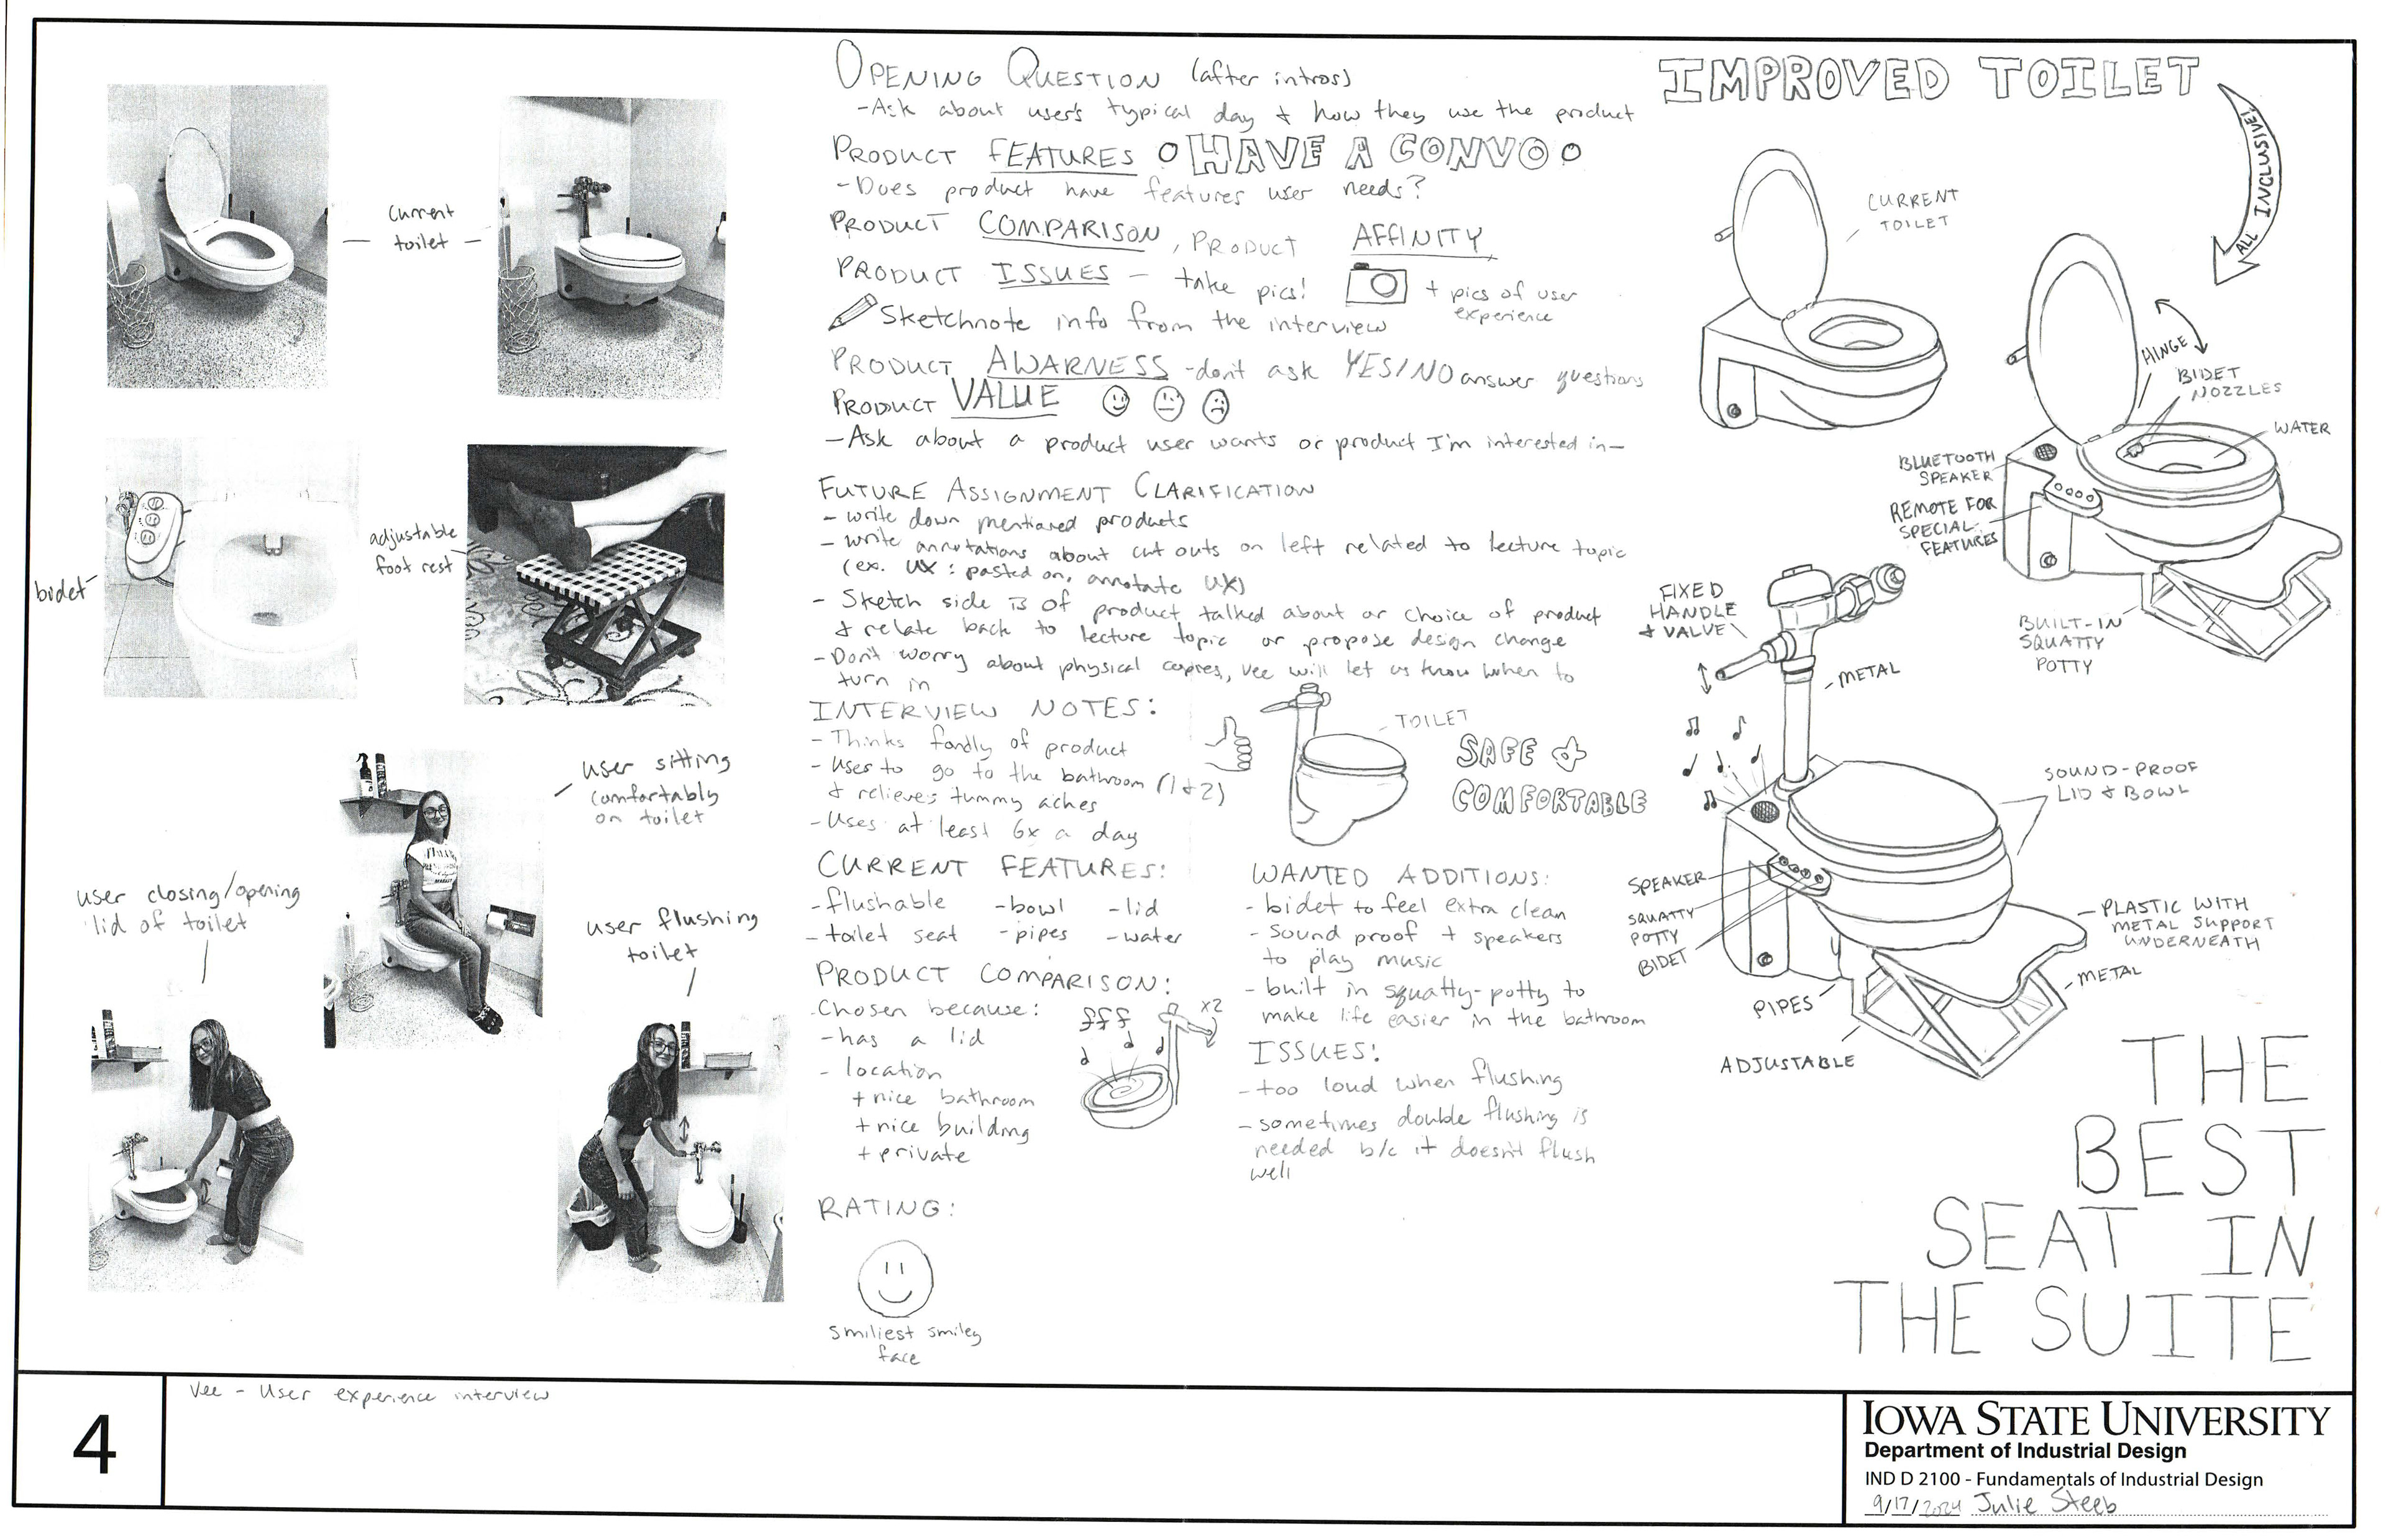 current
toilet
bidet
adjustable
foot rest
user sitting
comfortably
on toilet
user closing/opening
lid of toilet
user flushing
toilet
OPENING QUESTION (after intros)
-Ask about user's typical day & how they use the product
PRODUCT FEATURES HAVE A CONVO
-Does product have features user needs?
PRODUCT COMPARISON, PRODUCT AFFINITY
PRODUCT ISSUES - take pics! + pics of user
experience
Sketchnote info from the interview
PRODUCT AWARNESS -don't ask YES/NO answer questions
PRODUCT VALUE
-Ask about a product user wants or product I'm interested in-
FUTURE ASSIGNMENT CLARIFICATION
- write down mentioned products
- write annotations about cut outs on left related to lecture topic
(ex. UX: pasted on, annotate UX)
- Sketch side is of product talked about or choice of product
& relate back to lecture topic or propose design change
- Don't worry about physical copies, Vee will let us know when to
turn in
INTERVIEW NOTES:
- Thinks fondly of product
- Uses to go to the bathroom (1 & 2)
& relieves tummy aches
- Uses at least 6x a day
TOILET
SAFE &
COMFORTABLE
CURRENT FEATURES:
- flushable - bowl - lid
- toilet seat - pipes - water
PRODUCT COMPARISON:
Chosen because:
- has a lid
- location
+ nice bathroom
+ nice building
+ private
fff
x2
WANTED ADDITIONS:
- bidet to feel extra clean
- sound proof + speakers
to play music
- built in squatty-potty to
make life easier in the bathroom
ISSUES:
- too loud when flushing
- sometimes double flushing is
needed b/c it doesn't flush
well
RATING:
smiliest smiley
face
IMPROVED TOILET
ALL INCLUSIVE!
CURRENT
TOILET
HINGE
BIDET
NOZZLES
WATER
BLUETOOTH
SPEAKER
REMOTE FOR
SPECIAL
FEATURES
BUILT-IN
SQUATTY
POTTY
FIXED
HANDLE
& VALVE
METAL
SOUND-PROOF
LID & BOWL
SPEAKER
SQUATTY
POTTY
BIDET
PLASTIC WITH
METAL SUPPORT
UNDERNEATH
METAL
PIPES
ADJUSTABLE
THE
BEST
SEAT IN
THE SUITE
4
Vee - User experience interview
IOWA STATE UNIVERSITY
Department of Industrial Design
IND D 2100 - Fundamentals of Industrial Design
9/17/2024 Julie Steeb